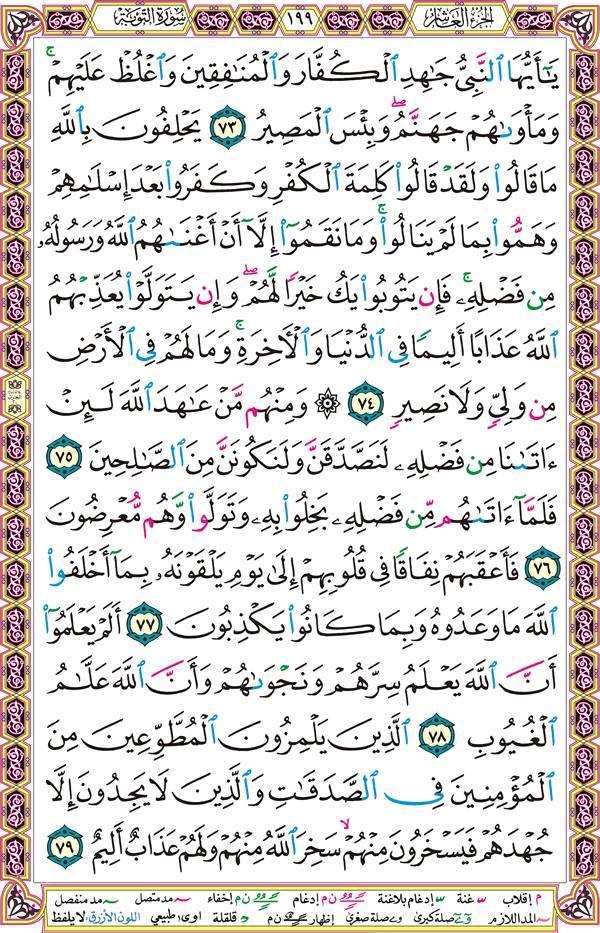 الجزء العاشر ١٩٩ سورة التوبة
يَٰٓأَيُّهَا ٱلنَّبِيُّ جَٰهِدِ ٱلۡكُفَّارَ وَٱلۡمُنَٰفِقِينَ وَٱغۡلُظۡ عَلَيۡهِمۡۚ
وَمَأۡوَىٰهُمۡ جَهَنَّمُۖ وَبِئۡسَ ٱلۡمَصِيرُ ٧٣ يَحۡلِفُونَ بِٱللَّهِ
مَا قَالُواْ وَلَقَدۡ قَالُواْ كَلِمَةَ ٱلۡكُفۡرِ وَكَفَرُواْ بَعۡدَ إِسۡلَٰمِهِمۡ
وَهَمُّواْ بِمَا لَمۡ يَنَالُواْۚ وَمَا نَقَمُوٓاْ إِلَّآ أَنۡ أَغۡنَىٰهُمُ ٱللَّهُ وَرَسُولُهُۥ
مِن فَضۡلِهِۦۚ فَإِن يَتُوبُواْ يَكُ خَيۡرٗا لَّهُمۡۖ وَإِن يَتَوَلَّوۡاْ يُعَذِّبۡهُمُ
ٱللَّهُ عَذَابًا أَلِيمٗا فِي ٱلدُّنۡيَا وَٱلۡأٓخِرَةِۚ وَمَا لَهُمۡ فِي ٱلۡأَرۡضِ
مِن وَلِيّٖ وَلَا نَصِيرٖ ٧٤ ۞ وَمِنۡهُم مَّنۡ عَٰهَدَ ٱللَّهَ لَئِنۡ
ءَاتَىٰنَا مِن فَضۡلِهِۦ لَنَصَّدَّقَنَّ وَلَنَكُونَنَّ مِنَ ٱلصَّٰلِحِينَ ٧٥
فَلَمَّآ ءَاتَىٰهُم مِّن فَضۡلِهِۦ بَخِلُواْ بِهِۦ وَتَوَلَّواْ وَّهُم مُّعۡرِضُونَ
٧٦ فَأَعۡقَبَهُمۡ نِفَاقٗا فِي قُلُوبِهِمۡ إِلَىٰ يَوۡمِ يَلۡقَوۡنَهُۥ بِمَآ أَخۡلَفُواْ
ٱللَّهَ مَا وَعَدُوهُ وَبِمَا كَانُواْ يَكۡذِبُونَ ٧٧ أَلَمۡ يَعۡلَمُوٓاْ
أَنَّ ٱللَّهَ يَعۡلَمُ سِرَّهُمۡ وَنَجۡوَىٰهُمۡ وَأَنَّ ٱللَّهَ عَلَّٰمُ
ٱلۡغُيُوبِ ٧٨ ٱلَّذِينَ يَلۡمِزُونَ ٱلۡمُطَّوِّعِينَ مِنَ
ٱلۡمُؤۡمِنِينَ فِي ٱلصَّدَقَٰتِ وَٱلَّذِينَ لَا يَجِدُونَ إِلَّا
جُهۡدَهُمۡ فَيَسۡخَرُونَ مِنۡهُمۡ سَخِرَ ٱللَّهُ مِنۡهُمۡ وَلَهُمۡ عَذَابٌ أَلِيمٌ ٧٩
م إقلاب غنة إدغام بلاغنة ن م إدغام ن م إخفاء مد متصل مد منفصل
المد اللازم صلة كبرى صلة صغرى إظهار ن م قلقلة اوى طبيعي اللون الأزرق: لا يلفظ